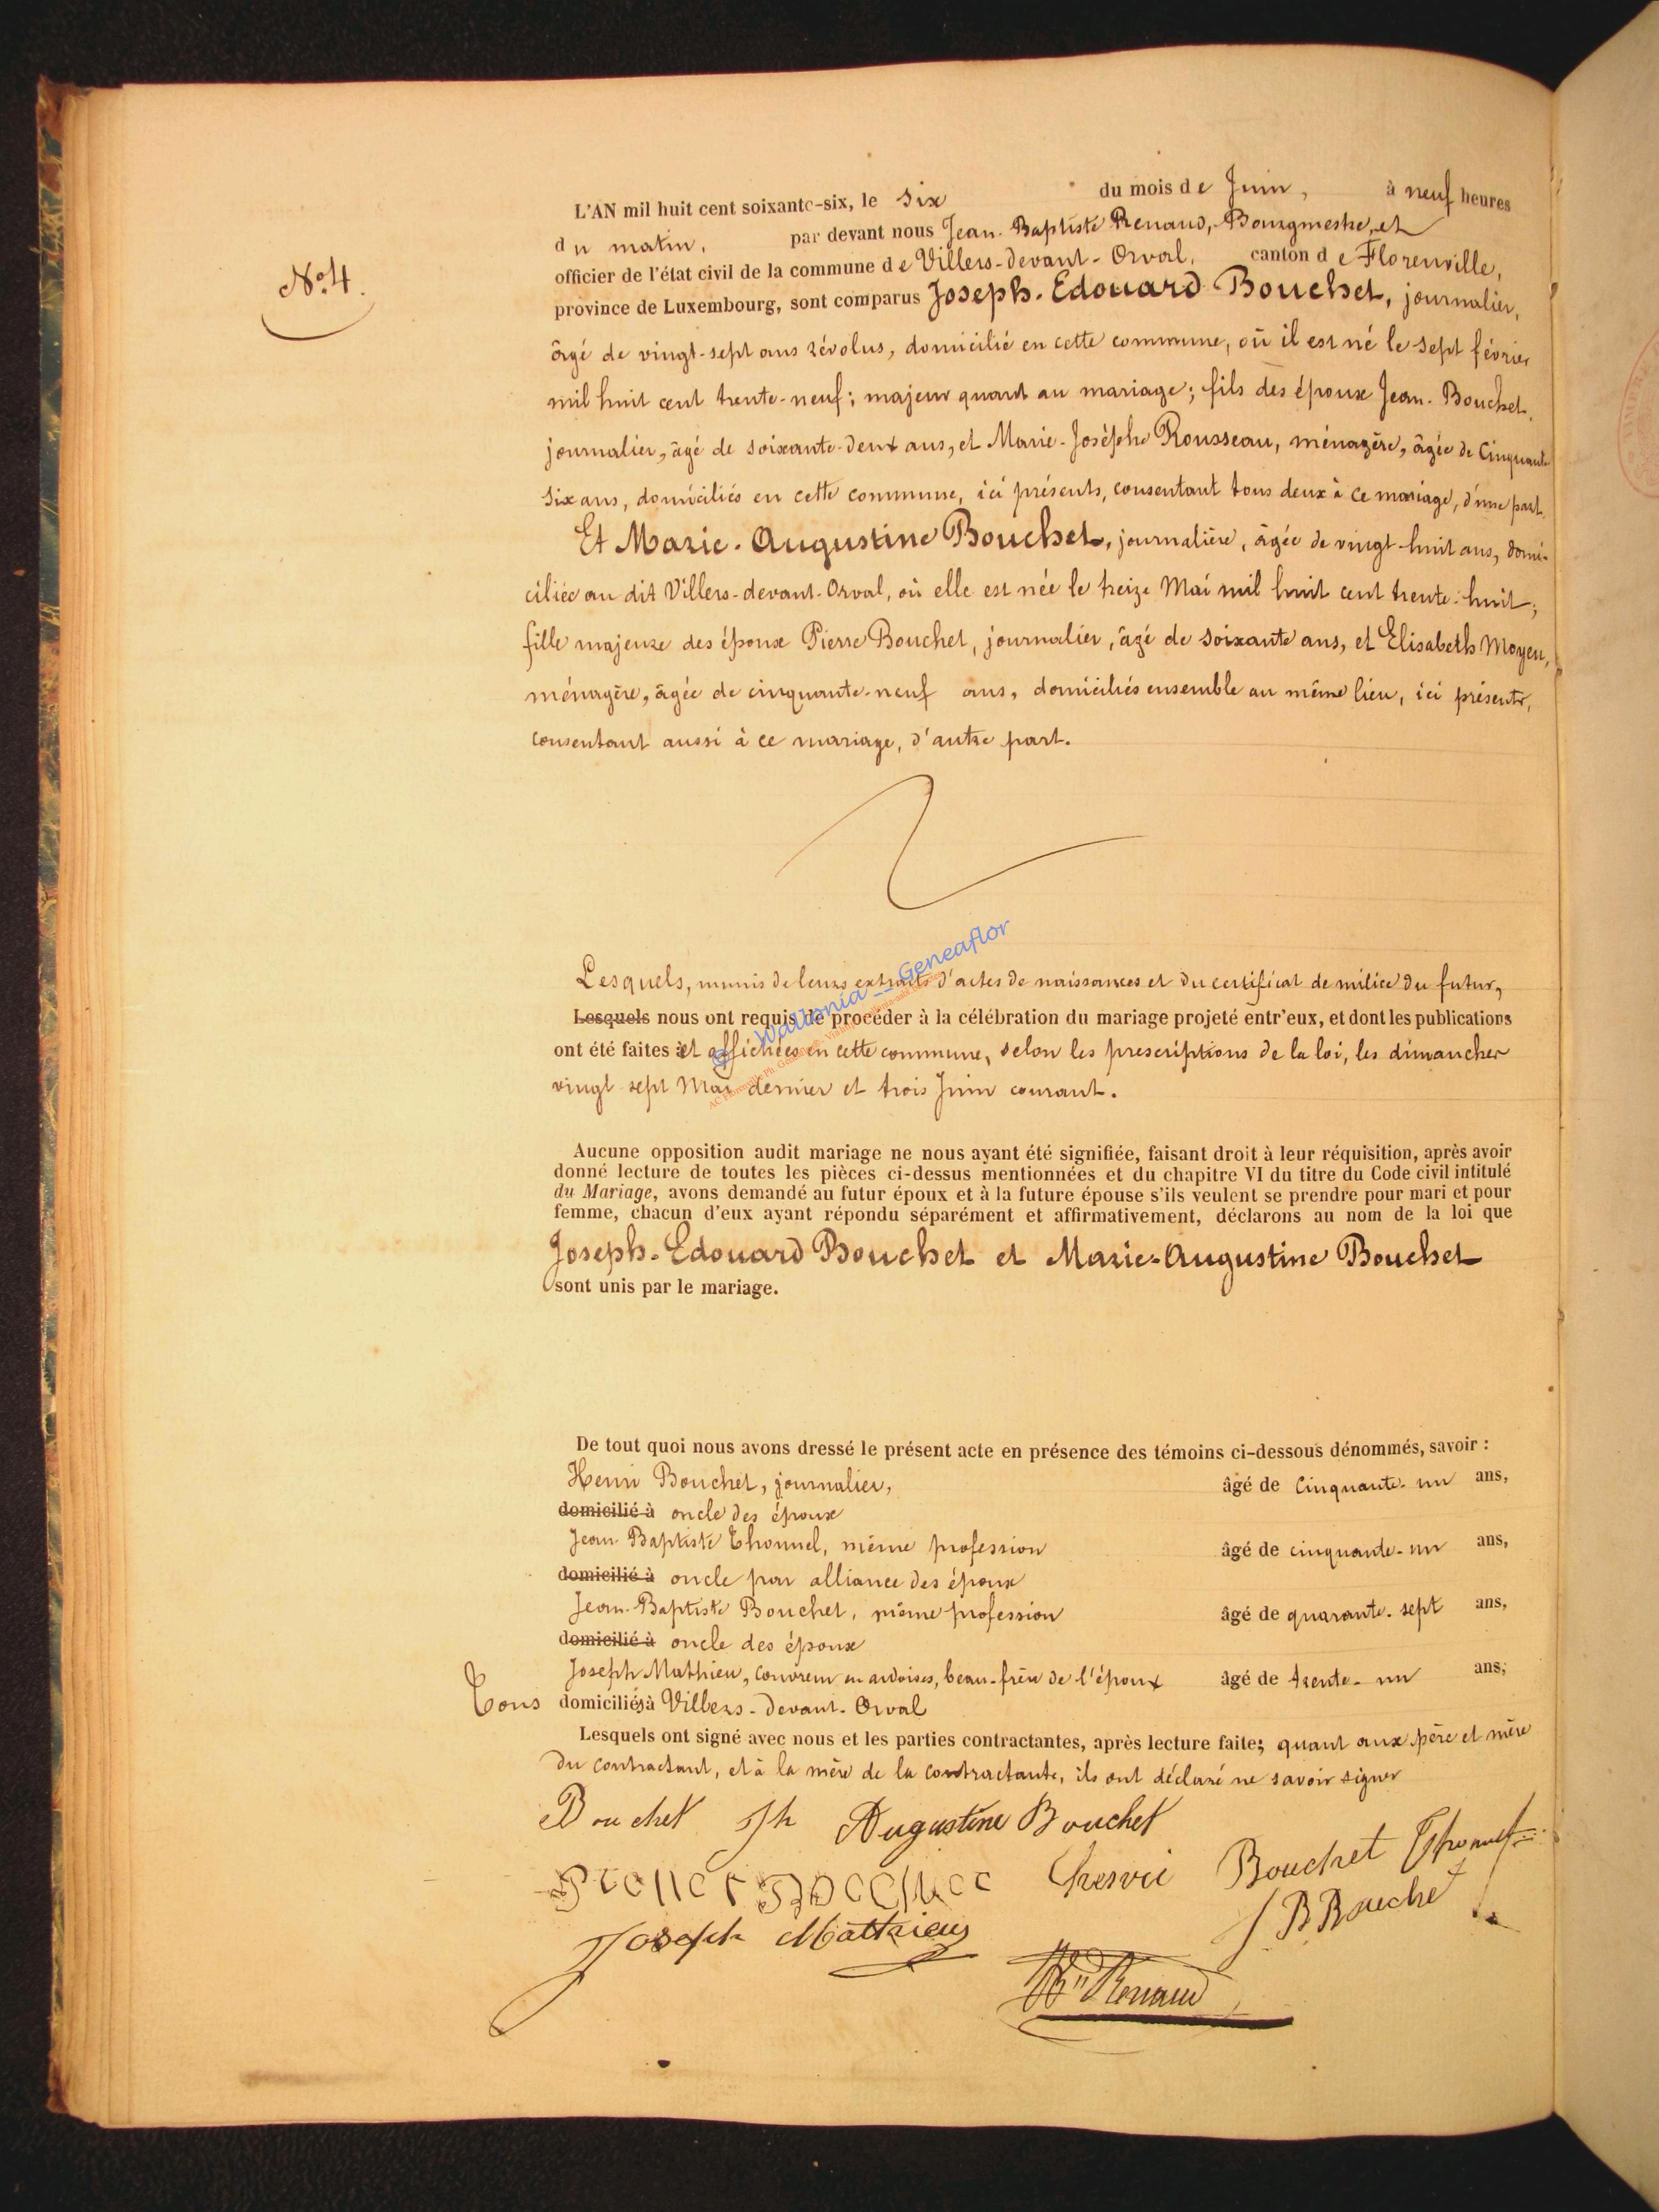 N.º 4.
L'AN mil huit cent soixante-six, le six du mois de Juin, à neuf heures
du matin, par devant nous Jean-Baptiste Renaud, Bourgmestre, et
officier de l'état civil de la commune de Villers-devant-Orval, canton de Florenville,
province de Luxembourg, sont comparus Joseph-Edouard Bouchet, journalier,
âgé de vingt-sept ans révolus, domicilié en cette commune, où il est né le sept février
mil huit cent trente-neuf; majeur quant au mariage; fils des époux Jean Bouchet,
journalier, âgé de soixante-deux ans, et Marie-Josèphe Rousseau, ménagère, âgée de cinquante
six ans, domiciliés en cette commune, ici présents, consentant tous deux à ce mariage, d'une part.
Et Marie-Augustine Bouchet, journalière, âgée de vingt-huit ans, domi-
ciliée au dit Villers-devant-Orval, où elle est née le treize Mai mil huit cent trente-huit;
fille majeure des époux Pierre Bouchet, journalier, âgé de soixante ans, et Elisabeth Moyen,
ménagère, âgée de cinquante-neuf ans, domiciliés ensemble au même lieu, ici présents,
consentant aussi à ce mariage, d'autre part.
Lesquels, munis de leurs extraits d'actes de naissances et du certificat de milice du futur,
Lesquels nous ont requis de procéder à la célébration du mariage projeté entr'eux, et dont les publications
ont été faites et affichées en cette commune, selon les prescriptions de la loi, les dimanches
vingt-sept Mai dernier et trois Juin courant.
© Wallonia__Geneaflor
Aucune opposition audit mariage ne nous ayant été signifiée, faisant droit à leur réquisition, après avoir
donné lecture de toutes les pièces ci-dessus mentionnées et du chapitre VI du titre du Code civil intitulé
du Mariage, avons demandé au futur époux et à la future épouse s'ils veulent se prendre pour mari et pour
femme, chacun d'eux ayant répondu séparément et affirmativement, déclarons au nom de la loi que
Joseph-Edouard Bouchet et Marie-Augustine Bouchet
sont unis par le mariage.
De tout quoi nous avons dressé le présent acte en présence des témoins ci-dessous dénommés, savoir :
Henri Bouchet, journalier, âgé de cinquante-un ans,
domicilié à oncle des époux
Jean Baptiste Thonnel, même profession âgé de cinquante-un ans,
domicilié à oncle par alliance des époux
Jean-Baptiste Bouchet, même profession âgé de quarante-sept ans,
domicilié à oncle des époux
Joseph Mathieu, couvreur en ardoises, beau-frère de l'époux âgé de trente-un ans;
Tous domiciliés à Villers-devant-Orval
Lesquels ont signé avec nous et les parties contractantes, après lecture faite; quant aux père et mère
du contractant, et à la mère de la contractante, ils ont déclaré ne savoir signer
Bouchet Jh Augustine Bouchet
Bouchet Thonnel
J B Bouchet
Joseph Mathieu
Renaud